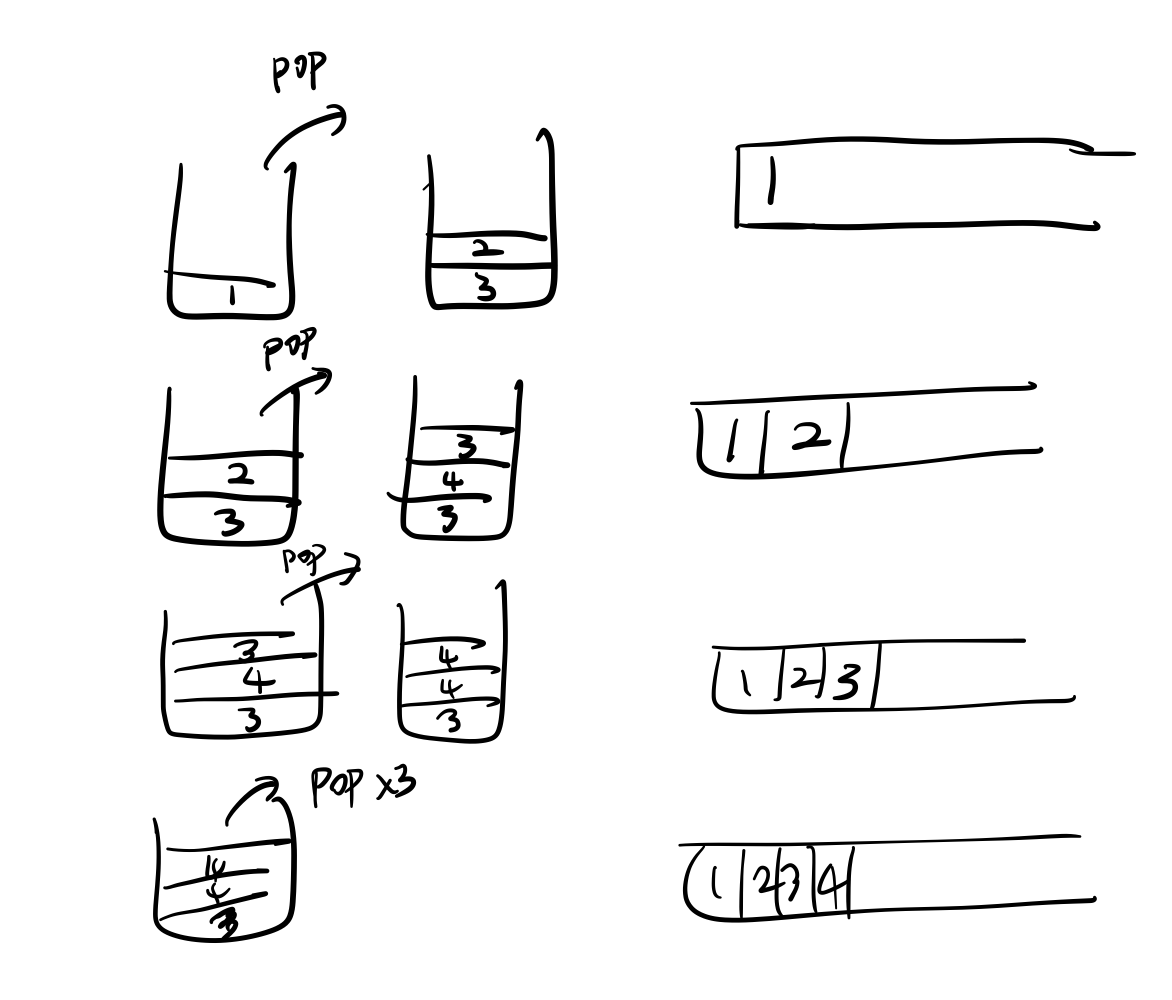 POP
1
2
3
1
POP
2
3
3
4
3
1 2
POP
3
4
3
4
4
3
1 2 3
POP x3
4
4
3
1 2 3 4